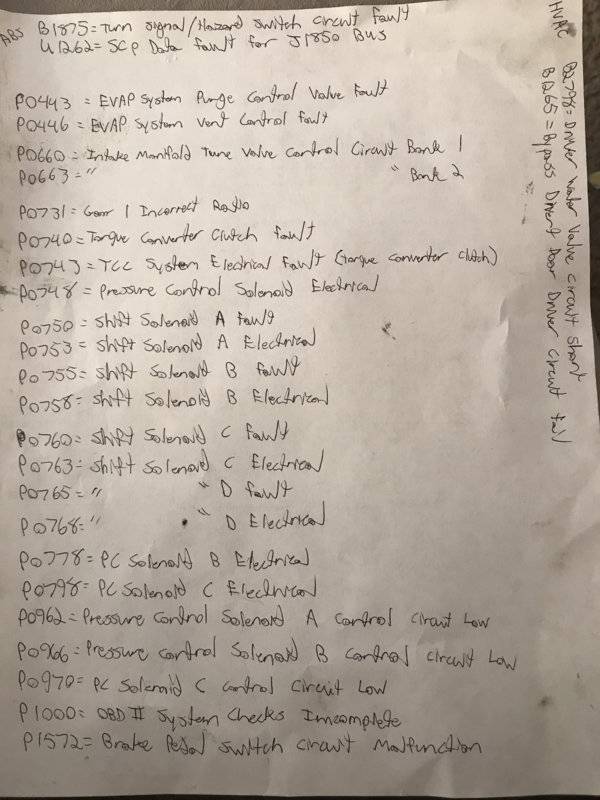 ABS B1875 = Turn signal/Hazard switch circuit fault
U1262 = SCP Data fault for J1850 Bus
P0443 = EVAP System Purge Control Valve Fault
P0446 = EVAP System Vent Control fault
P0660 = Intake Manifold Tune Valve Control Circuit Bank 1
P0663 = " " Bank 2
P0731 = Gear 1 Incorrect Ratio
P0740 = Torque Converter Clutch fault
P0743 = TCC System Electrical Fault (torque converter clutch)
P0748 = Pressure Control Solenoid Electrical
P0750 = Shift Solenoid A fault
P0753 = Shift Solenoid A Electrical
P0755 = Shift Solenoid B fault
P0758 = Shift Solenoid B Electrical
P0760 = Shift Solenoid C fault
P0763 = Shift Solenoid C Electrical
P0765 = " " D fault
P0768 = " " D Electrical
P0778 = PC Solenoid B Electrical
P0798 = PC Solenoid C Electrical
P0962 = Pressure Control Solenoid A control circuit Low
P0966 = Pressure control Solenoid B control circuit Low
P0970 = PC Solenoid C control Circuit Low
P1000 = OBD II System Checks Imcomplete
P1572 = Brake Pedal switch circuit Malfunction
HVAC B2798 = Driver Water Valve circuit short
B1265 = Bypass Divert Door Driver Circuit fail